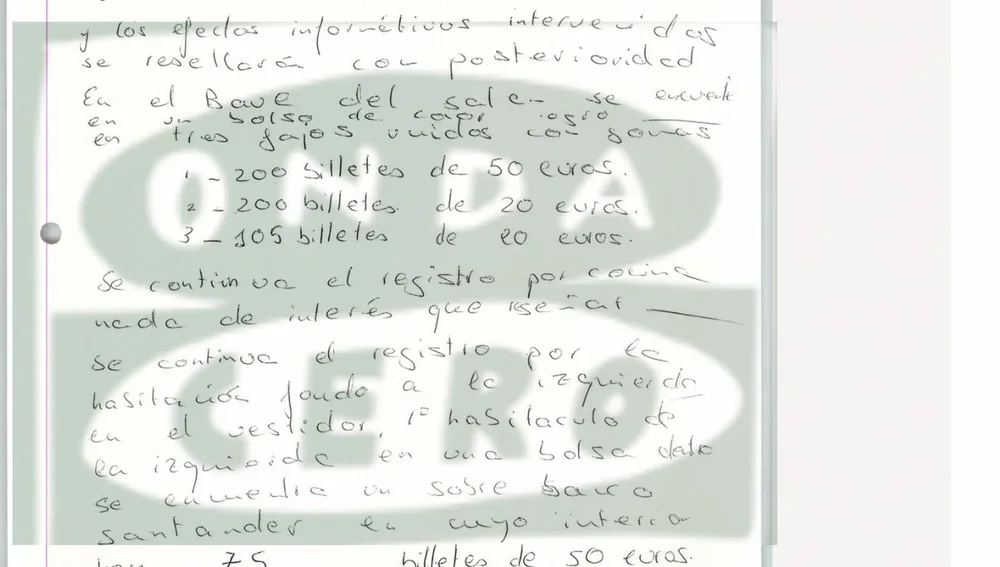 y los efectos informáticos intervenidos
se resellarán con posterioridad
En el Baue del salon se encuent
en un bolso de color
en tres fajos unidos con gomas
1 - 200 billetes de 50 euros.
2 - 200 billetes de 20 euros.
3 - 105 billetes de 20 euros.
Se continua el registro por cocina
nada de interés que reseñar
se continua el registro por la
habitación fondo a la izquierda
en el vestidor, 1º habitaculo de
la izquierda en una bolsa
se encuentra un sobre banco
santander en cuyo interior
hay 75 billetes de 50 euros.
ONDA
CERO